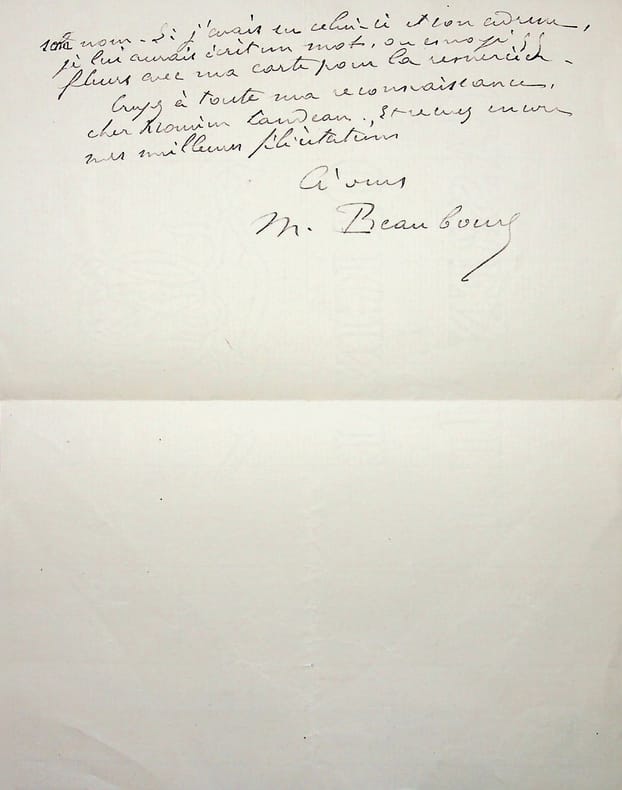 son nom. Si j'avais eu celui-ci et son adresse,
je lui aurais écrit un mot, ou envoyé
fleurs avec ma carte pour la remercier.
Croyez à toute ma reconnaissance,
cher Monsieur Landeau. Et recevez encore
mes meilleures félicitations
A vous
M. Beaubourg